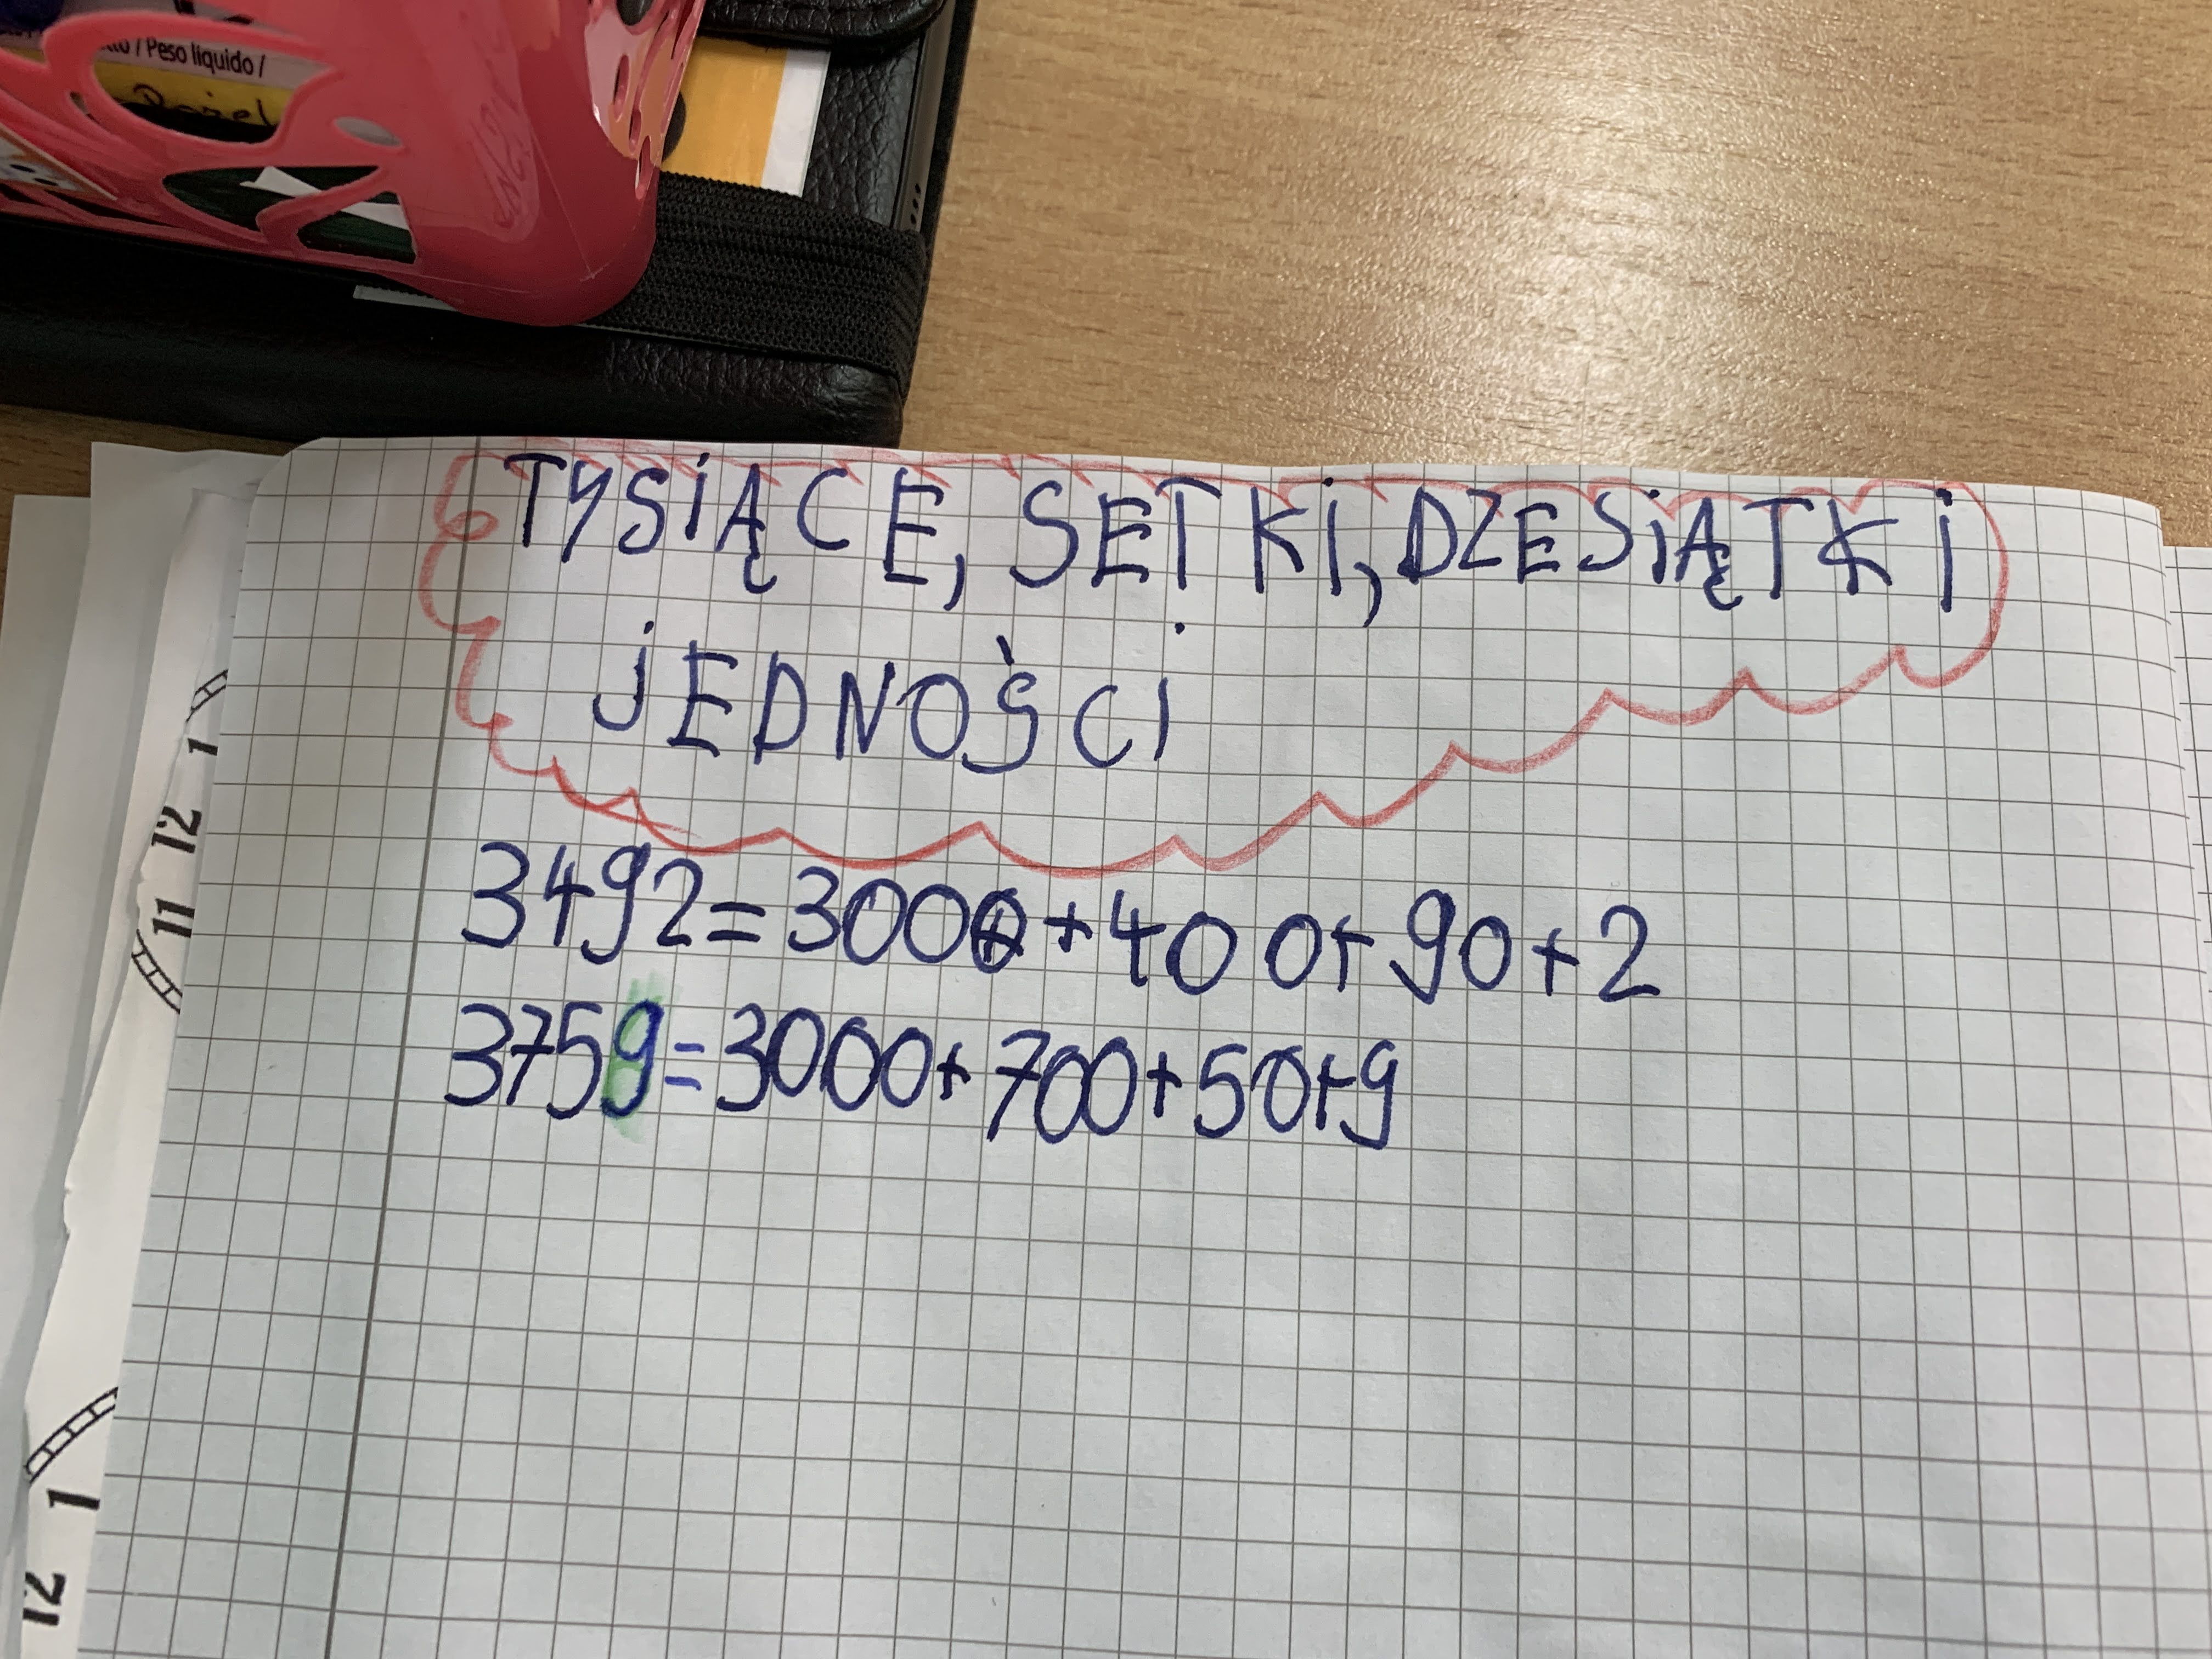 to / Peso liquido /
TYSIĄCE, SETKI, DZESIĄTKI
JEDNOŚCI
3492=3000+400+90+2
3759=3000+700+50+9
1
12
11
1
12